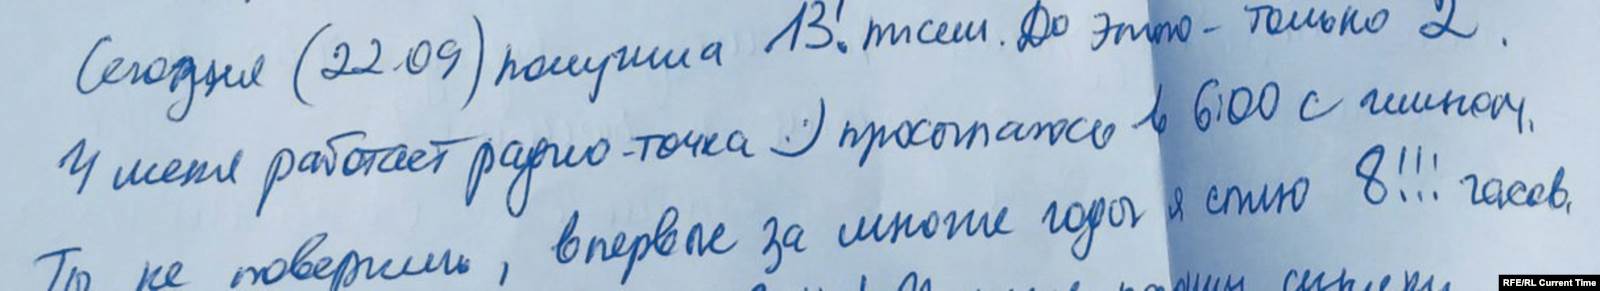 Сегодня (22.09) получила 13! писем. До этого - только 2.
У меня работает радио-точка :) просыпаюсь в 6:00 с гимном.
Ты не поверишь, впервые за многие годы я сплю 8!!! часов.
RFE/RL Current Time